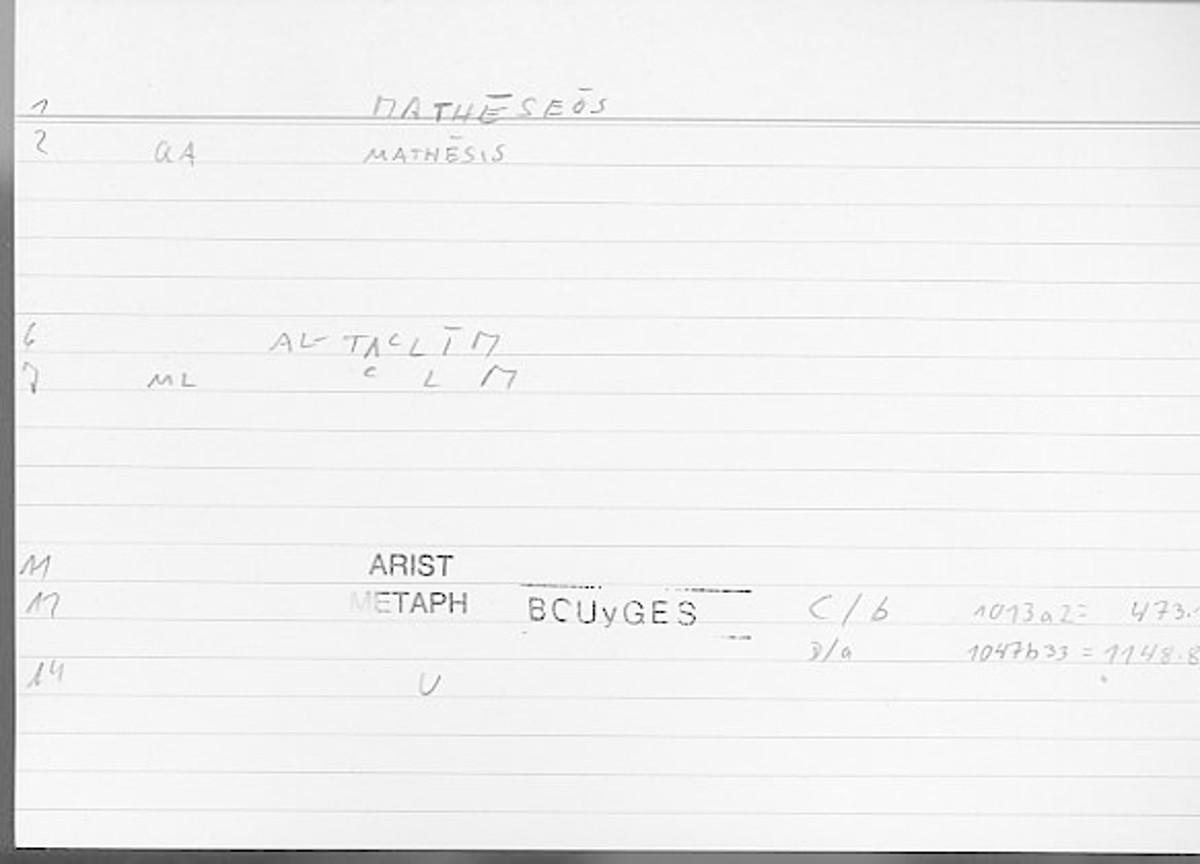 1 MATHĒSEŌS
2 GA MATHĒSIS
6 AL-TAᶜLĪM
7 ML ᶜ L M
11 ARIST
12 METAPH BCUyGES C/b 1013a2= 473.
D/a 1047b33 = 1148.8
14 U